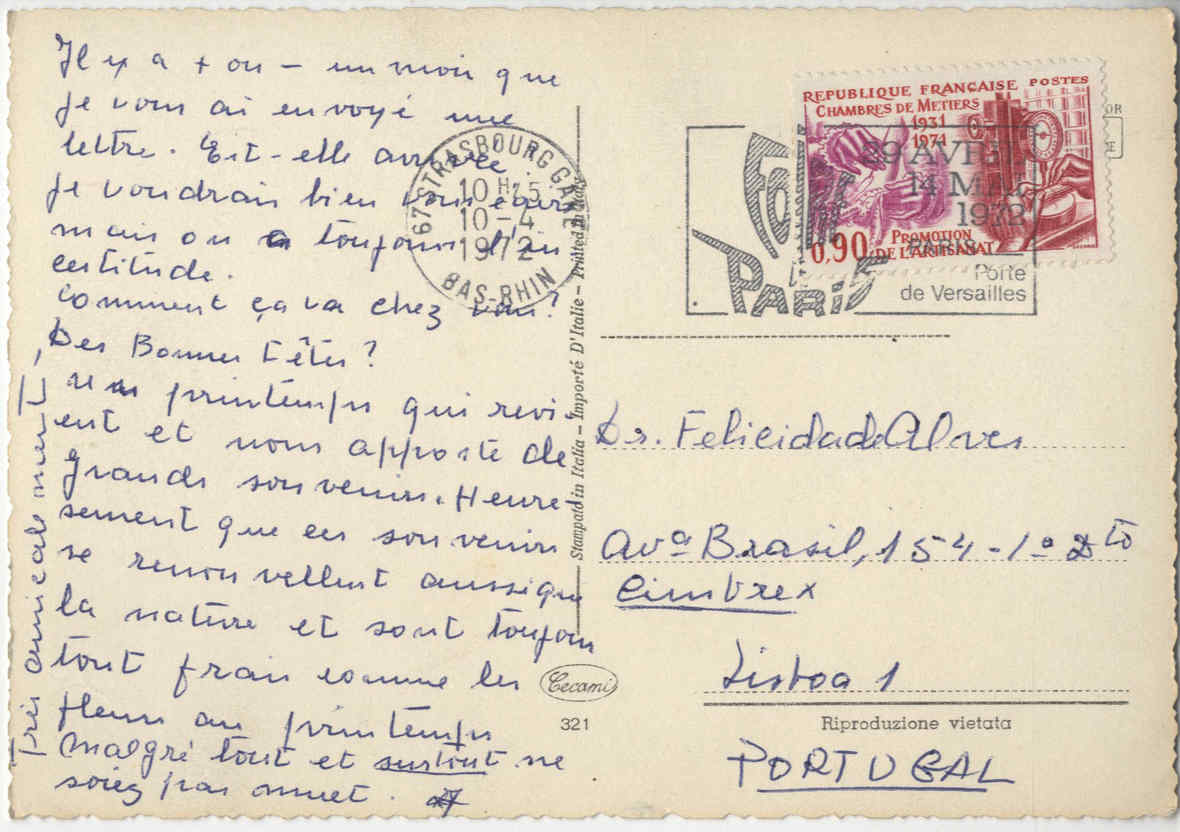 Il y a + ou - un mois que
je vous ai envoyé une
lettre. Est-elle arrivée
Je voudrais bien vous écrire
mais on a toujours l'in
certitude.
Comment ça va chez vous?
Des Bonnes Fêtes?
un printemps qui revi-
ent et nous apporte de
grands souvenirs. Heure-
sement que ces souvenirs
se renouvellent aussi que
la nature et sont toujours
tout frais comme les
fleurs au printemps
malgré tout et surtout ne
soiez pas muet.
Très amicalement,
67 STRASBOURG GARE
10 H 25
10-4
1972
BAS-RHIN
REPUBLIQUE FRANÇAISE POSTES
CHAMBRES DE METIERS
1931
1971
0,90 PROMOTION
DE L'ARTISANAT
FOIRE
DE
PARIS
29 AVRIL
14 MAI
1972
PARIS
Porte
de Versailles
Stampato in Italia - Importé D'Italie - Printed in Italy
Dr. Felicidade Alves
Avª Brasil, 154-1º Dto
Cimbrex
Lisboa 1
PORTUGAL
Cecami
321
Riproduzione vietata